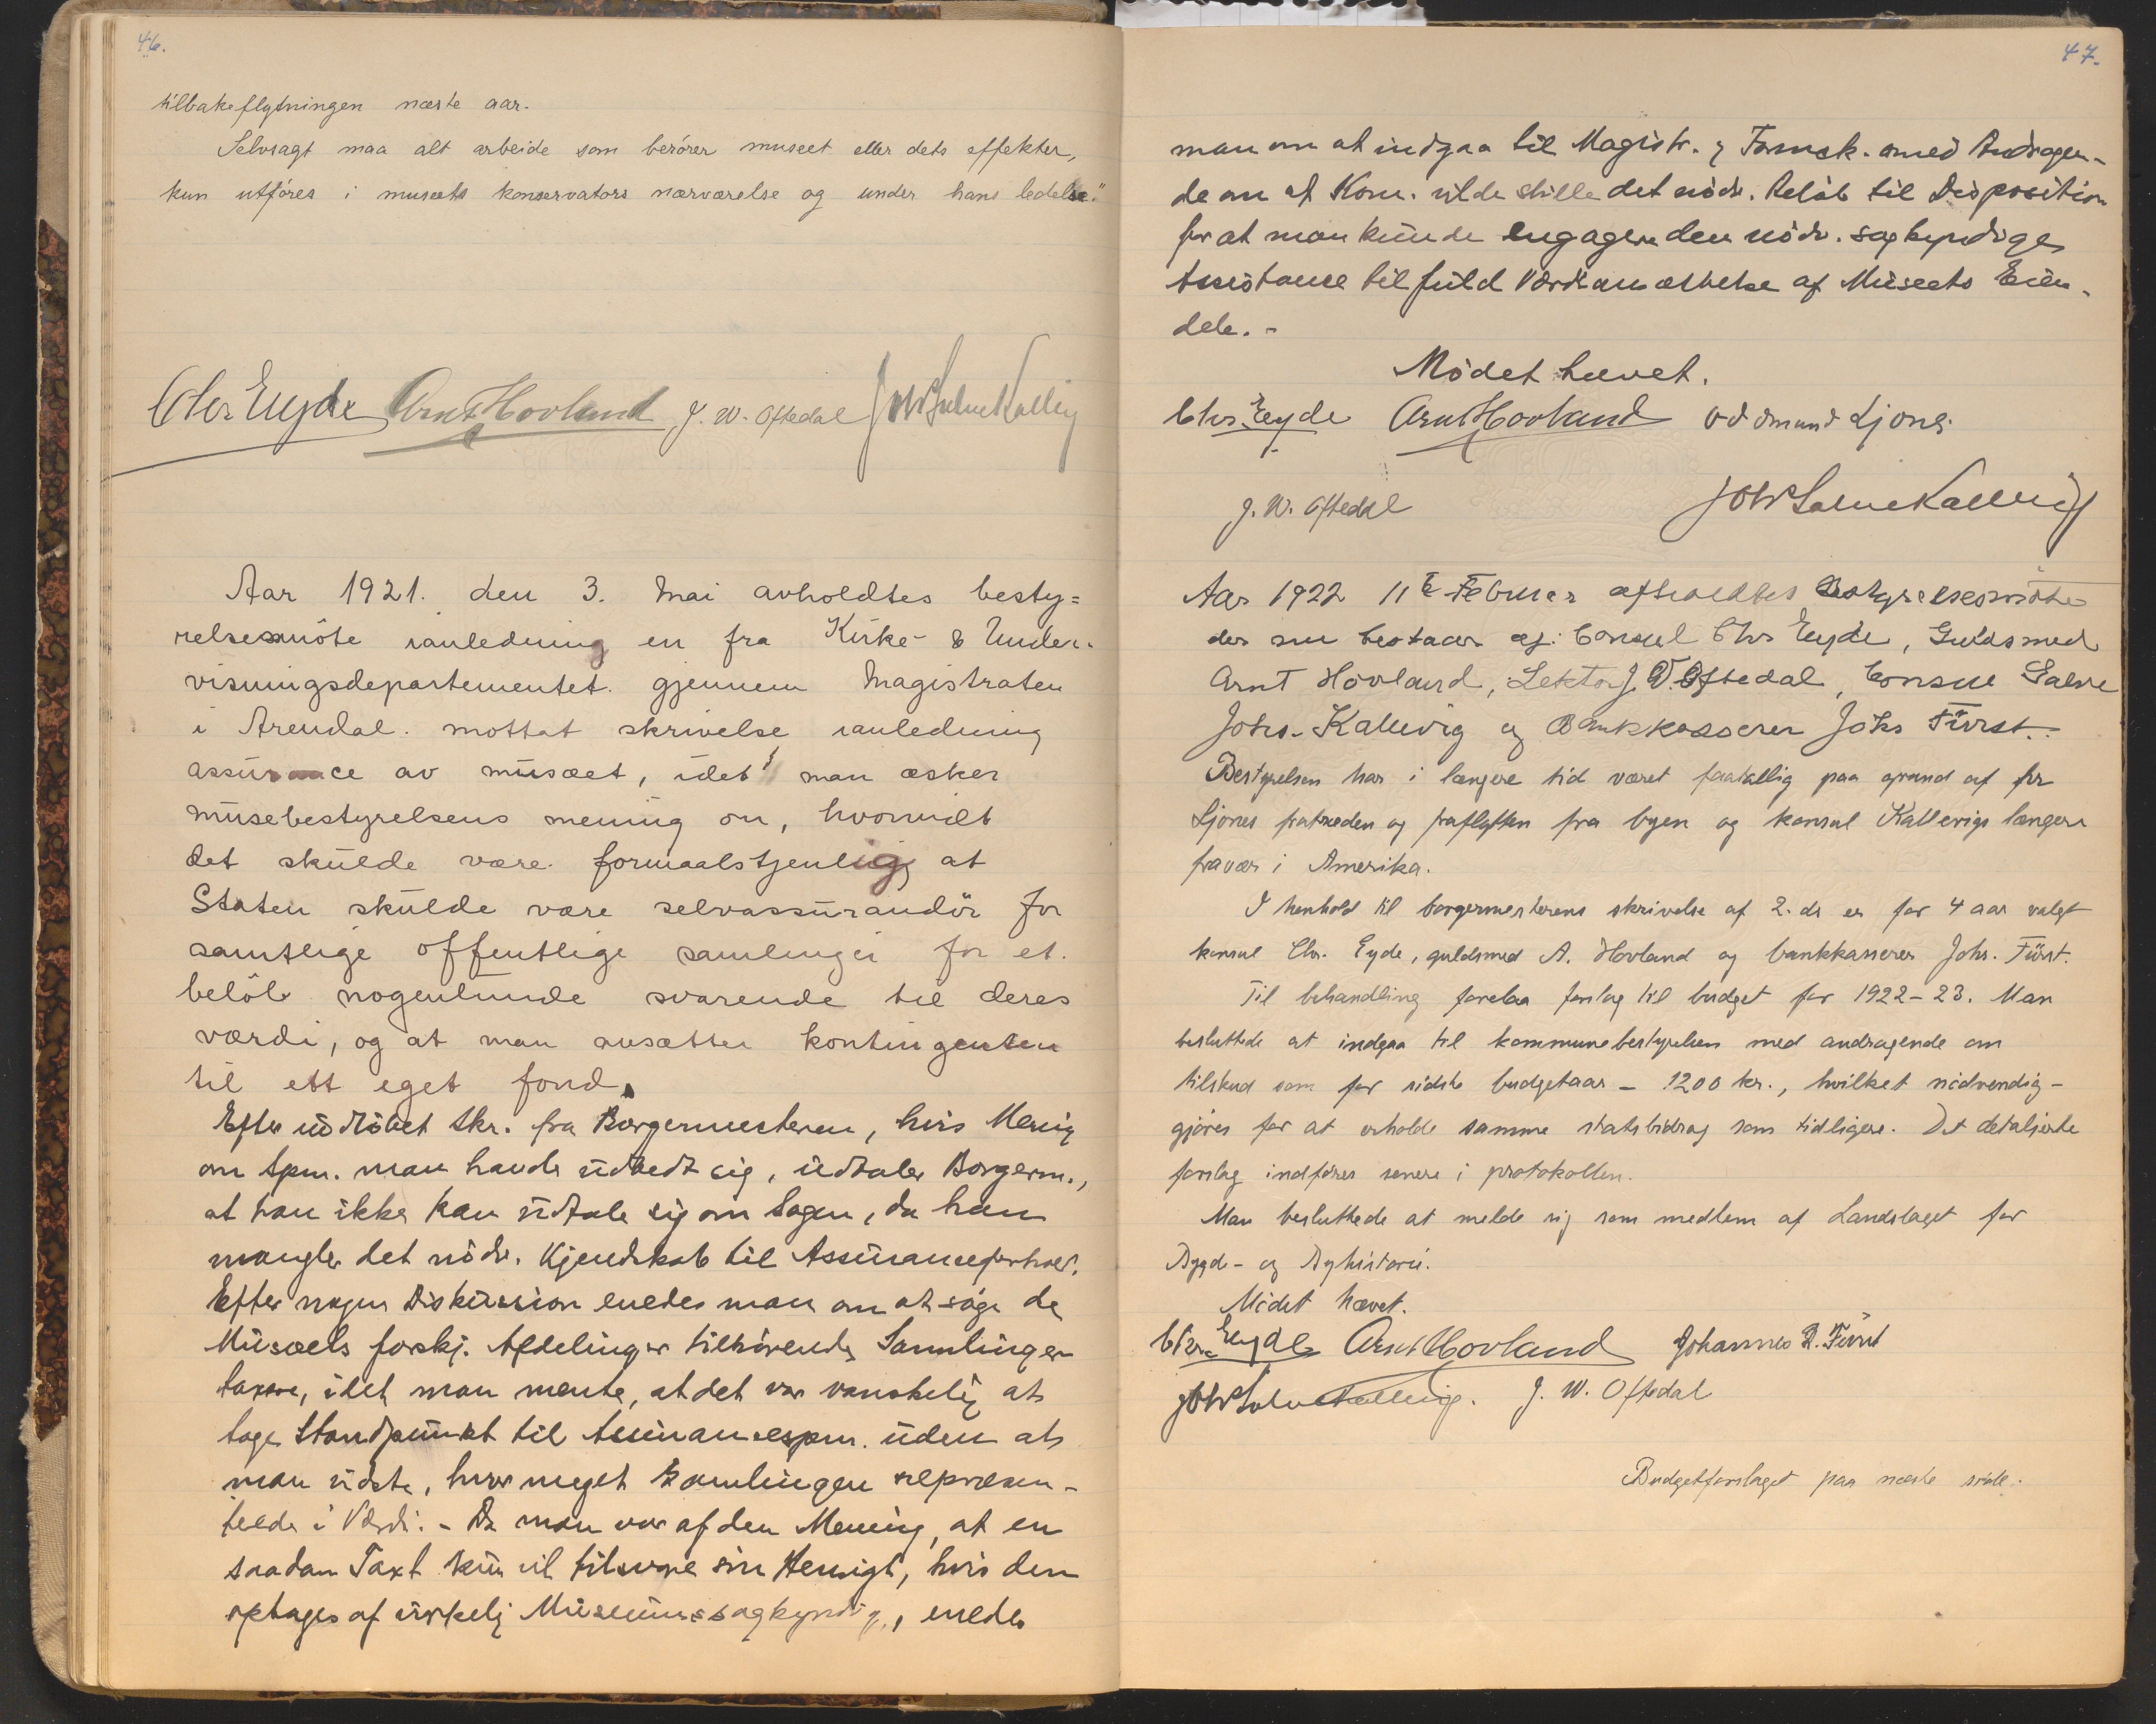 46.
tilbakeflytningen næste aar.
Selvsagt maa alt arbeide som berører museet eller dets effekter,
kun utføres i museets konservators nærværelse og under hans ledelse."
Chr Eyde Arnt Hovland J. W. Oftedal Joh Salve Kallevig
Aar 1921. den 3. Mai avholdtes besty=
relsesmöte ianledning en fra Kirke- & Under-
visningsdepartementet gjennem Magistraten
i Arendal. mottat skrivelse ianledning
assurance av musæet, idet man æsker
müsebestyrelsens mening om, hvorvidt
det skulde være formaalstjenlig at
Staten skülde være selvassürandör for
samtlige offentlige samlinger for et
belöb nogenlunde svarende til deres
værdi, og at man ansætter kontingenten
til ett eget fond.
Efter üdlöbet Skr. fra Borgermesteren, hvis Mening
om Spm. man havde üdbedt sig, üdtaler Borgerm.,
at han ikke kan üdtale sig om Sagen, da han
mangler det nödv. Kjendskab til Assüranceforhold.
Efter nogen Diskussion enedes man om at söge de
Müsæets forskj. Afdelinger tilhörende Samlinger
taxere, idet man mente, at det var vanskelig at
tage Standpünkt til Assüransespm. üden at
man vidste, hvor meget Samlingen repræsen-
terede i Værdi. - Da man var af den Mening, at en
saadan Taxt kün vil tilsvare sin Hensigt, hvis den
optages af virkelig Museümssagkyndig, enedes
47.
man om at indgaa til Magistr. & Formsk. med Andragen-
de om at Kom. vilde stille det nödv. Belöb til Disposition
for at man künde engagere den nödv. sagkyndige
Assistance til füld Værdiansættelse af Müseets Eien-
dele. -
Mödet hævet.
Chr Eyde Arnt Hovland Oddmund Ljone
J. W. Oftedal Joh Salve Kallevig
Aar 1922 11te Februar afholdtes Bestyrelsesmöte
der nu bestaar af: Consul Chr Eyde, Guldsmed
Arnt Hovland, Lektor J. W. Oftedal, Consul Salve
Johs. Kallevig og Bankkasserer Johs Fürst.
Bestyrelsen har i længere tid været faatallig paa grund af hr
Ljones fratræden og fraflytten fra byen og konsul Kallevigs længere
fravær i Amerika.
I henhold til borgermesterens skrivelse af 2. ds er for 4 aar valgt
konsul Chr. Eyde, guldsmed A. Hovland og bankkasserer Johs. Fürst.
Til behandling forelaa forslag til budget for 1922-23. Man
besluttede at indgaa til kommunebestyrelsen med andragende om
tilskud som for sidste budgetaar - 1200 kr., hvilket nødvendig-
gjøres for at erholde samme statsbidrag som tidligere. Det detaljerte
forslag indføres senere i protokollen.
Man besluttede at melde sig som medlem af Landslaget for
Bygde- og Byhistorie.
Mødet hævet.
Chr Eyde Arnt Hovland Johannes R. Fürst
Joh Salve Kallevig. J. W. Oftedal
Budgetforslaget paa næste side.